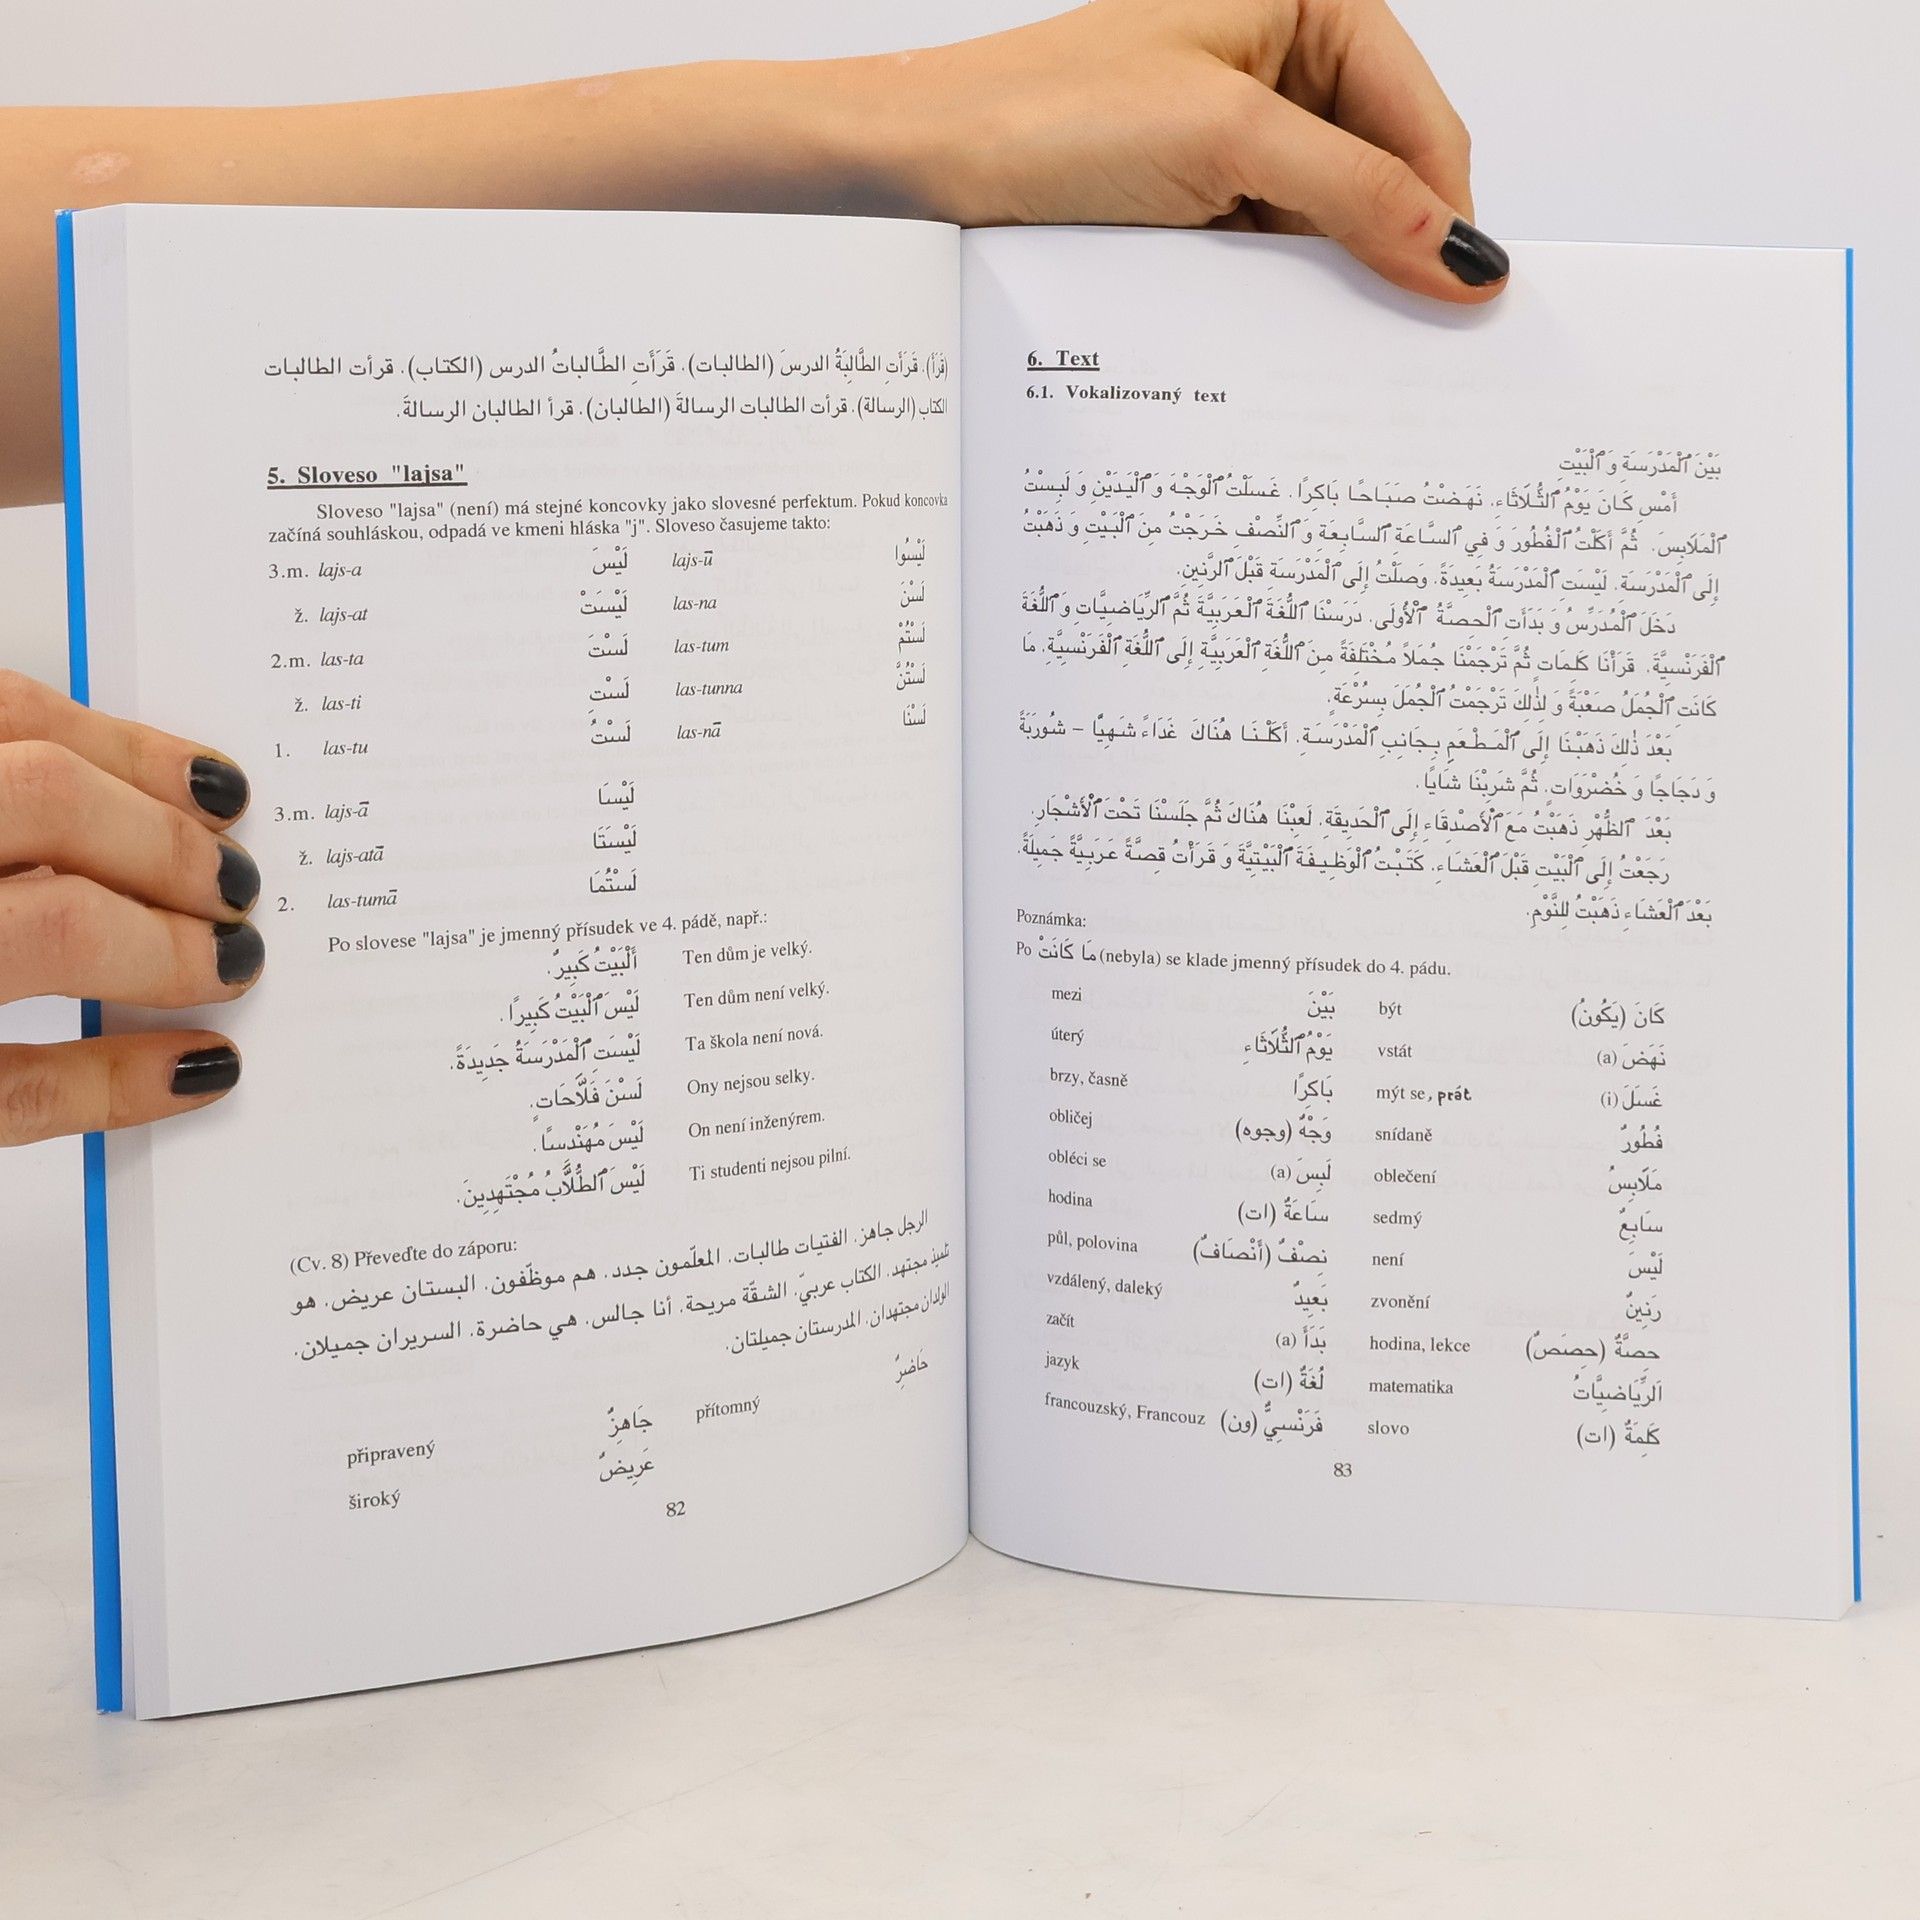 (قَرَأَ). قَرَأَتِ الطَّالِبَةُ الدرسَ (الطالبات). قَرَأَتِ الطَّالباتُ الدرس (الكتاب). قرأت الطالبات
الكتاب (الرسالة). قرأت الطالبات الرسالةَ (الطالبان). قرأ الطالبان الرسالةَ.
5. Sloveso "lajsa"
Sloveso "lajsa" (není) má stejné koncovky jako slovesné perfektum. Pokud koncovka
začíná souhláskou, odpadá ve kmeni hláska "j". Sloveso časujeme takto:
3.m. lajs-a لَيْسَ lajs-ū لَيْسُوا
ž. lajs-at لَيْسَتْ las-na لَسْنَ
2.m. las-ta لَسْتَ las-tum لَسْتُمْ
ž. las-ti لَسْتِ las-tunna لَسْتُنَّ
1. las-tu لَسْتُ las-nā لَسْنَا
3.m. lajs-ā لَيْسَا
ž. lajs-atā لَيْسَتَا
2. las-tumā لَسْتُمَا
Po slovese "lajsa" je jmenný přísudek ve 4. pádě, např.:
أَلْبَيْتُ كَبِيرٌ. Ten dům je velký.
لَيْسَ ٱلْبَيْتُ كَبِيرًا. Ten dům není velký.
لَيْسَتِ ٱلْمَدْرَسَةُ جَدِيدَةً. Ta škola není nová.
لَسْنَ فَلَّاحَاتٍ. Ony nejsou selky.
لَيْسَ مُهَنْدسًا. On není inženýrem.
لَيْسَ ٱلطُّلَّابُ مُجْتَهِدِينَ. Ti studenti nejsou pilní.
(Cv. 8) Převeďte do záporu:
الرجل جاهز. الفتيات طالبات. المعلّمون جدد. هم موظّفون. البستان عريض. هو
تلميذ مجتهد. الكتاب عربيّ. الشقّة مريحة. أنا جالس. هي حاضرة. السريران جميلان.
الولدان مجتهدان. المدرستان جميلتان.
připravený جَاهِزٌ přítomný حَاضِرٌ
široký عَرِيضٌ
82
6. Text
6.1. Vokalizovaný text
بَيْنَ ٱلْمَدْرَسَةِ وَ ٱلْبَيْتِ
أَمْسِ كَانَ يَوْمُ ٱلثُّلَاثَاءِ. نَهَضْتُ صَبَاحًا بَاكِرًا. غَسَلْتُ ٱلْوَجْهَ وَ ٱلْيَدَيْنِ وَ لَبِسْتُ
ٱلْمَلَابِسَ. ثُمَّ أَكَلْتُ ٱلْفُطُورَ وَ فِي ٱلسَّاعَةِ ٱلسَّابِعَةِ وَ ٱلنِّصْفِ خَرَجْتُ مِنَ ٱلْبَيْتِ وَ ذَهَبْتُ
إِلَى ٱلْمَدْرَسَةِ. لَيْسَتِ ٱلْمَدْرَسَةُ بَعِيدَةً. وَصَلْتُ إِلَى ٱلْمَدْرَسَةِ قَبْلَ ٱلرَّنِينِ.
دَخَلَ ٱلْمُدَرِّسُ وَ بَدَأَتِ ٱلْحِصَّةُ ٱلْأُولَى. دَرَسْنَا ٱللُّغَةَ ٱلْعَرَبِيَّةَ ثُمَّ ٱلرِّيَاضِيَّاتِ وَ ٱللُّغَةَ
ٱلْفَرَنْسِيَّةَ. قَرَأْنَا كَلِمَاتٍ ثُمَّ تَرْجَمْنَا جُمَلاً مُخْتَلِفَةً مِنَ ٱللُّغَةِ ٱلْعَرَبِيَّةِ إِلَى ٱللُّغَةِ ٱلْفَرَنْسِيَّةِ. مَا
كَانَتِ ٱلْجُمَلُ صَعْبَةً وَ لِذٰلِكَ تَرْجَمْتُ ٱلْجُمَلَ بِسُرْعَةٍ.
بَعْدَ ذٰلِكَ ذَهَبْنَا إِلَى ٱلْمَطْعَمِ بِجَانِبِ ٱلْمَدْرَسَةِ. أَكَلْنَا هُنَاكَ غَدَاءً شَهِيًّا – شُورَبَةً
وَ دَجَاجًا وَ خُضْرَوَاتٍ. ثُمَّ شَرِبْنَا شَايًا.
بَعْدَ ٱلظُّهْرِ ذَهَبْتُ مَعَ ٱلْأَصْدِقَاءِ إِلَى ٱلْحَدِيقَةِ. لَعِبْنَا هُنَاكَ ثُمَّ جَلَسْنَا تَحْتَ ٱلْأَشْجَارِ.
رَجَعْتُ إِلَى ٱلْبَيْتِ قَبْلَ ٱلْعَشَاءِ. كَتَبْتُ ٱلْوَظِيفَةَ ٱلْبَيْتِيَّةَ وَ قَرَأْتُ قِصَّةً عَرَبِيَّةً جَمِيلَةً.
بَعْدَ ٱلْعَشَاءِ ذَهَبْتُ لِلنَّوْمِ.
Poznámka:
Po مَا كَانَتْ (nebyla) se klade jmenný přísudek do 4. pádu.
mezi بَيْنَ být كَانَ (يَكُونُ)
úterý يَوْمُ ٱلثُّلَاثَاءِ vstát نَهَضَ (a)
brzy, časně بَاكِرًا mýt se, prát غَسَلَ (i)
obličej وَجْهٌ (وجوه) snídaně فُطُورٌ
obléci se لَبِسَ (a) oblečení مَلَابِسُ
hodina سَاعَةٌ (ات) sedmý سَابِعٌ
půl, polovina نِصْفٌ (أَنْصَافٌ) není لَيْسَ
vzdálený, daleký بَعِيدٌ zvonění رَنِينٌ
začít بَدَأَ (a) hodina, lekce حِصَّةٌ (حِصَصٌ)
jazyk لُغَةٌ (ات) matematika اَلرِّيَاضِيَّاتُ
francouzský, Francouz فَرَنْسِيٌّ (ون) slovo كَلِمَةٌ (ات)
83